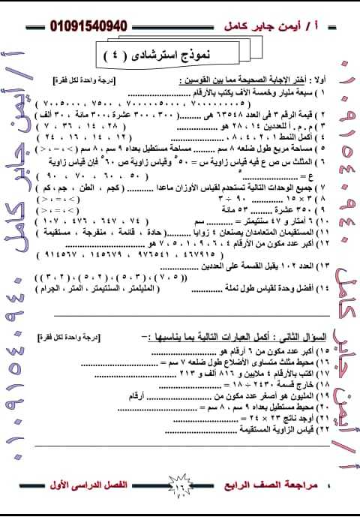 أ / أيمن جابر كامل 01091540940
نموذج استرشادى ( ٤ )
أولا : أختر الإجابة الصحيحة مما بين القوسين : [درجة واحدة لكل فقرة]
١) سبعة مليار وخمسة الآف يكتب بالأرقام ............
٢) قيمة الرقم ٣ فى العدد ٦٣٥٤٨ هى .........(٣٠٠ ، ٣٠٠ عشرة ، ٣٠٠ مائة ، ٣٠ ألف )
٣) م . م . أ للعددين ١٤ ، ٢٨ هو ............ ( ٢٨ ، ١٤ ، ٣٦ ، ٧ )
٤) أكمل النمط ١ ، ٢ ، ٤ ، ٨ ، ............ ( ١٢ ، ١٤ ، ١٦ ، ٢٤ )
٥) مساحة مربع طول ضلعه ٨ سم ......... مساحة مستطيل بعداه ٩ سم ، ٨ سم ( > ، = ، < )
٦) المثلث س ص ع فيه قياس زاوية س = ٥٠° وقياس زاوية ص = ٦٠° فإن قياس زاوية
ع = ............° ( ٥٠ ، ٦٠ ، ٧٠ ، ٩٠ )
٧) جميع الوحدات التالية تستخدم لقياس الأوزان ماعدا ............ ( كجم ، الطن ، جم ، كم )
٨) ٣ × ١٥ ............ ٩٠ ÷ ٣ ( > ، = ، < )
٩) ٣٥٠ عشرة ......... ٥٣ مائة ( > ، = ، < )
١٠) ٦ أمتار و ٤٧ سنتيمتر = ............ سم ( ٧٤ ، ٦٤٧ ، ١٠٧ ، ٤٧٦ )
١١) المستقيمان المتعامدان يصنعان ٤ زوايا ......... ( حادة ، قائمة ، منفرجة ، مستقيمة )
١٢) أكبر عدد مكون من الأرقام ٤ ، ٦ ، ٩ ، ١ ، ٥ ، ٧ هو ............
( ٤٦٧٩١٥ ، ٩٧٦٥٤١ ، ١٤٥٦٧٩ ، ٩١٤٥٦٧ )
١٣) العدد ١٠٢ يقبل القسمة على العددين ............
( ( ٢ ، ٣ ) ، ( ٥ ، ٢ ) ، ( ٥ ، ٣ ) ، ( ٧ ، ٥ ) )
١٤) أفضل وحدة لقياس طول نملة ............ ( المليمتر ، السنتيمتر ، المتر ، الجرام )
السؤال الثانى : أكمل العبارات التالية بما يناسبها :- [درجة واحدة لكل فقرة]
١٥) أكبر عدد مكون من ٦ أرقام هو ............
١٦) محيط مثلث متساوى الأضلاع طول ضلعه ٧ سم = ............
١٧) اكتب بالأرقام ٤ ملايين و ٨١٦ ألف و ٢١٣ ............
١٨) خارج قسمة ٢٤٣٠ ÷ ١٨ = ............
١٩) المليون هو أصغر عدد مكون من ............ أرقام
٢٠) محيط مستطيل بعداه ٩ سم ، ٨ سم = ............
٢١) أوجد ناتج ٢٣ × ٢٤ = ............
٢٢) قياس الزاوية المستقيمة ............
مراجعة الصف الرابع الفصل الدراسى الأول
أ / أيمن جابر كامل ٠١٠٩١٥٤٠٩٤٠
٠١٠٩١٥٤٠٩٤٠ أ / أيمن جابر كامل